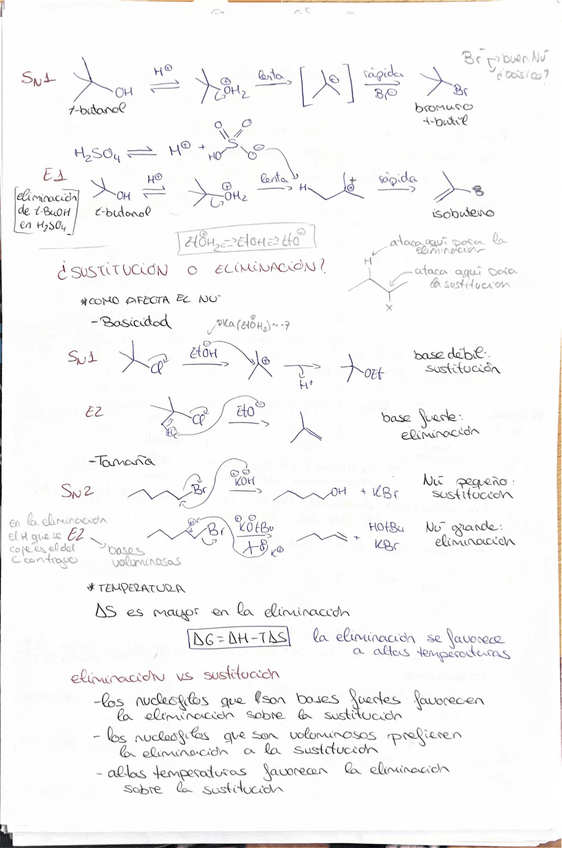 Br⁻ → buen Nü
¿básico?
SN1
OH
H⊕
⊕OH2
lenta
rápida
Br⊖
Br
t-butanol
bromuro
t-butil
H2SO4 ⇌ H⊕ +
O
O
S
HO
O⊖
E1
eliminación
de t-BuOH
en H2SO4
OH
H⊕
⊕OH2
lenta
H
⊕
rápida
t-butanol
isobuteno
EtOH2⊕ ⇌ EtOH ⇌ EtO⊖
ataca aquí para la
eliminación
H
ataca aquí para
la sustitución
X
¿SUSTITUCIÓN O ELIMINACIÓN?
*COMO AFECTA EL NU⁻
- Basicidad
pKa(EtOH2)~-7
SN1
Cl
EtOH
⊕
H⁺
OEt
base débil:
sustitución
E2
Cl
EtO⊖
H
base fuerte:
eliminación
- Tamaña
SN2
Br
KOH
OH + KBr
Nü pequeño:
sustitución
en la eliminación
el H que se
coge es el del
C contiguo
E2
bases
voluminosas
Br
KOtBu
K⊕
+
HOtBu
KBr
Nü grande:
eliminación
* TEMPERATURA
ΔS es mayor en la eliminación
ΔG = ΔH-TΔS
la eliminación se favorece
a altas temperaturas
eliminación vs sustitución
-los nucleófilos que son bases fuertes favorecen
la eliminación sobre la sustitución
- los nucleófilos que son voluminosos prefieren
la eliminación a la sustitución
- altas temperaturas favorecen la eliminación
sobre la sustitución